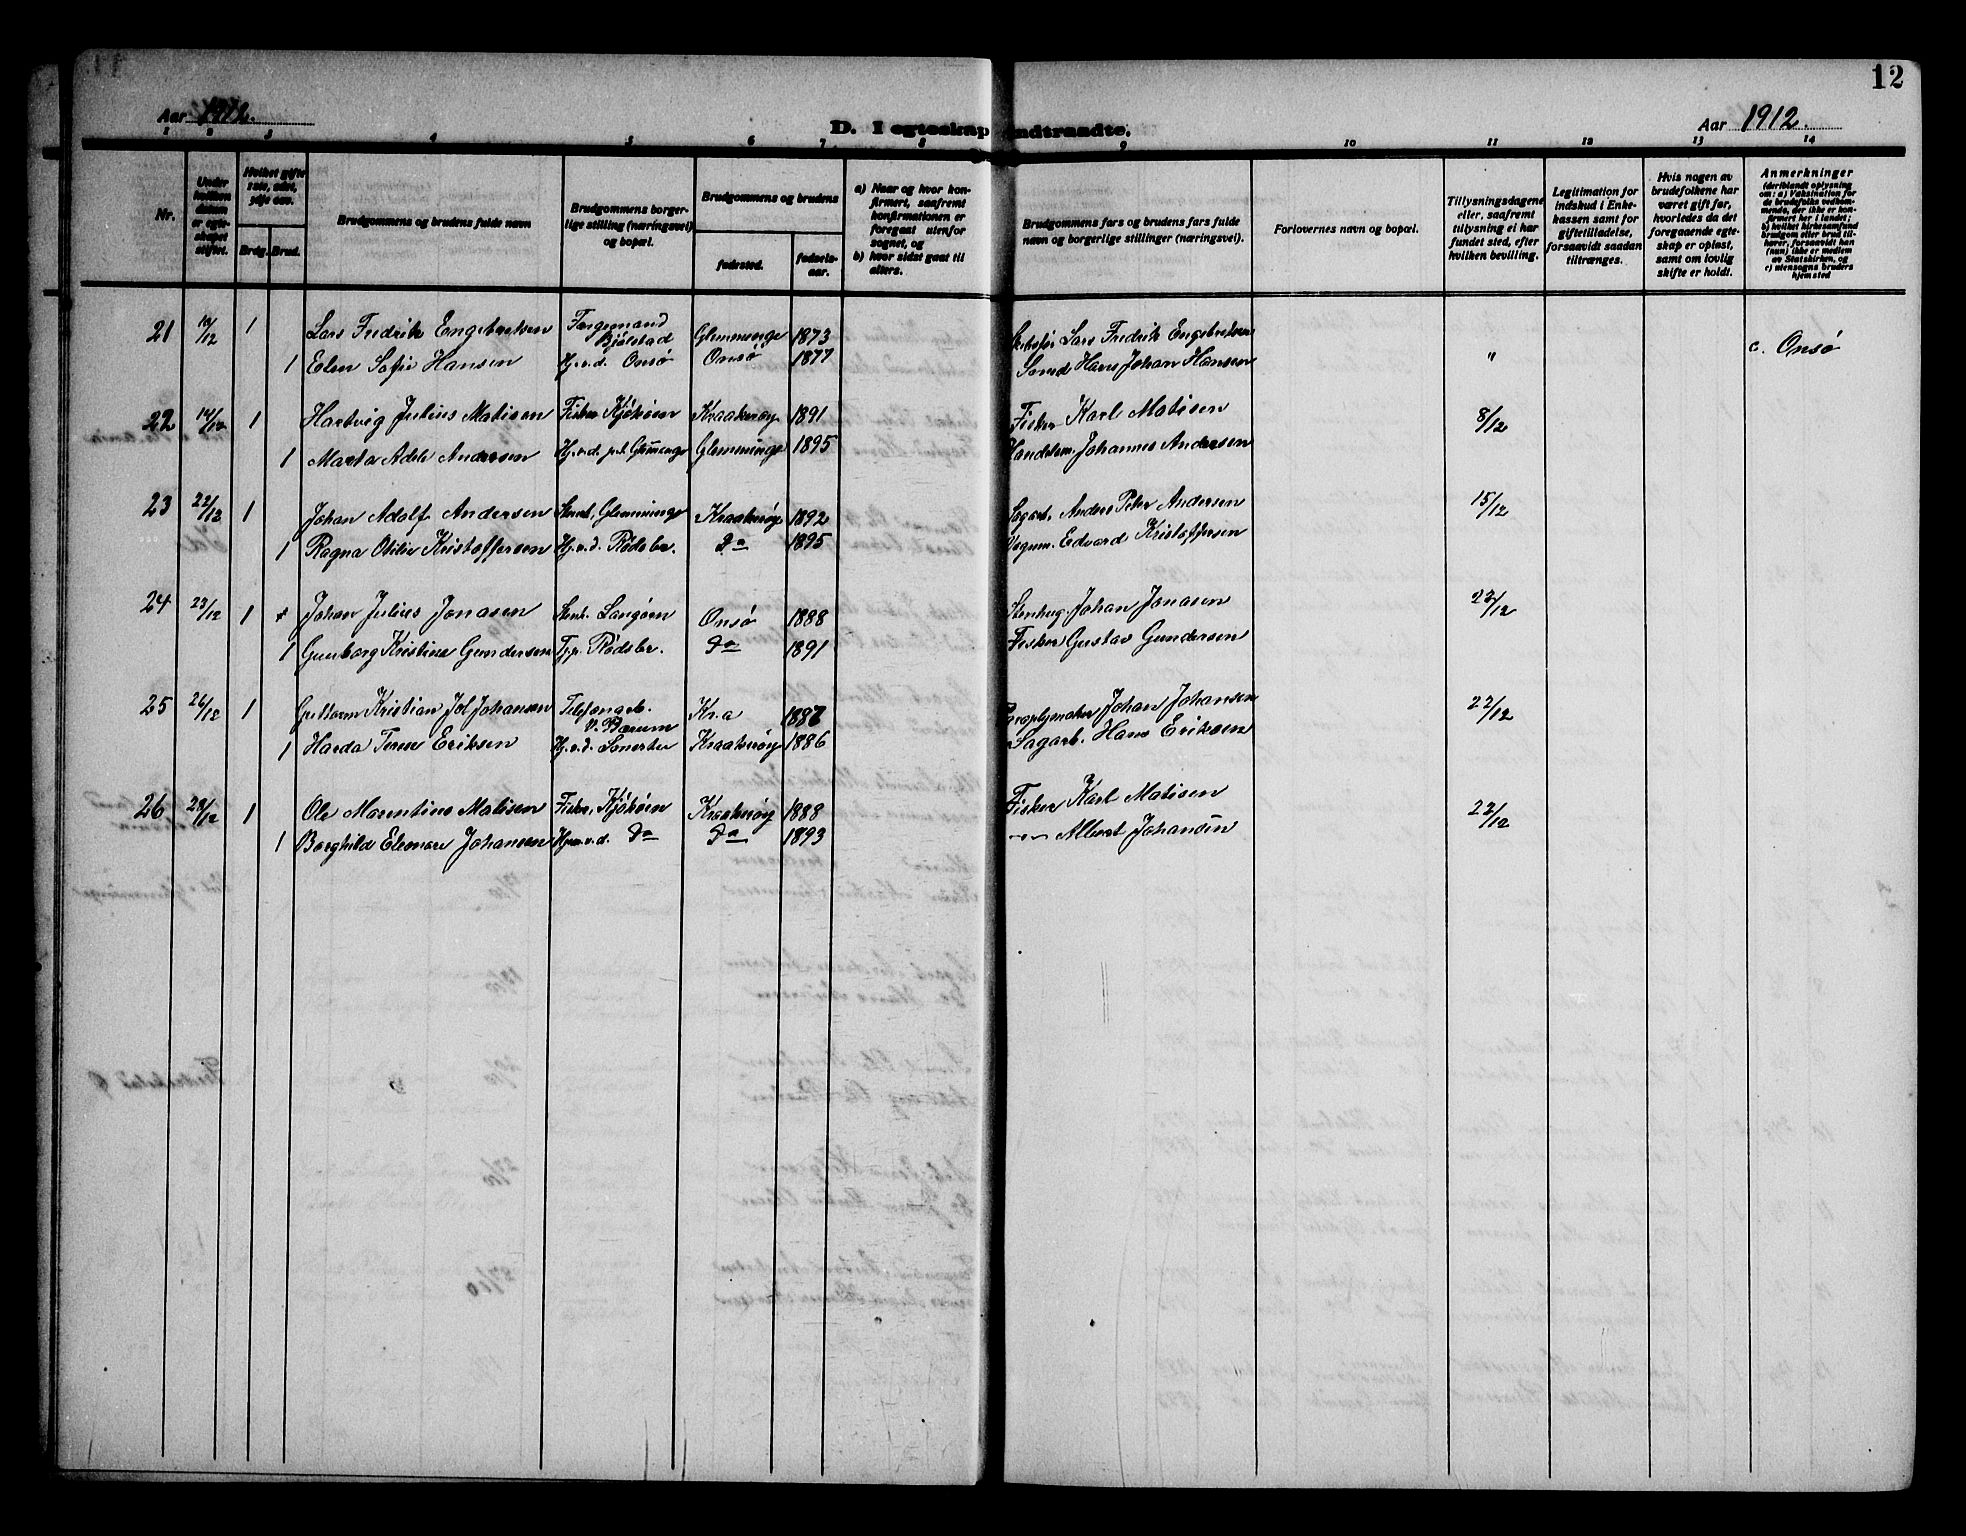 12
Aar 1912.
D. I egteskap indtraadte.
Aar 1912.
1 2 3 4 5 6 7 8 9 10 11 12 13 14
Nr.
Under hvilken datum er egteskapet stiftet.
Hvilket gifte 1ste, andet, 3dje osv.
Brdg. Brud.
Brudgommens og brudens fulde navn
Brudgommens borgerlige stilling (næringsvei) og bopæl.
Brudgommens og brudens
fødested.
fødselsaar.
a) Naar og hvor konfirmert, saafremt konfirmationen er foregaat utenfor sognet, og
b) hvor sidst gaat til alters.
Brudgommens fars og brudens fars fulde navn og borgerlige stillinger (næringsvei).
Forlovernes navn og bopæl.
Tillysningsdagene eller, saafremt tillysning ei har fundet sted, efter hvilken bevilling.
Legitimation for indskud i Enkekassen samt for giftetilladelse, forsaavidt saadan tiltrænges.
Hvis nogen av brudefolkene har været gift før, hvorledes da det foregaaende egteskap er opløst, samt om lovlig skifte er holdt.
Anmerkninger
(deriblandt oplysning om: a) Vaksination for de brudefolks vedkommende, der ikke er konfirmert her i landet; b) hvilket kirkesamfund brudgom eller brud tilhører, forsaavidt han (hun) ikke er medlem av Statskirken, og c) utensogns bruders hjemsted
21 10/12 1 Lars Fredrik Engebretsen Færgemand Bjølstad Glemminge 1873 Lars Fredrik Engebretsen " c. Onsø
1 Elen Sofie Hansen Hj.v.d. Onsø Onsø 1877 Hans Johan Hansen
22 14/12 1 Hartvig Julius Matisen Fisker Kjøkøen Kraakerøy 1891 Fisker Karl Matisen 8/12
1 Marta Adele Andersen Hj.v.d. Glemminge 1895 Handelsm. Johannes Andersen
23 22/12 1 Johan Adolf Andersen Stenh. Glemminge Kraakerøy 1892 Sagarb. Anders Peter Andersen 15/12
1 Ragna Otilie Kristoffersen Hj.v.d. Rødsbr. Do 1895 Edvard Kristoffersen
24 23/12 1 Johan Julius Jonasen Stenh. Langøen Onsø 1888 Stenhug. Johan Jonasen 22/12
1 Gunborg Kristine Gundersen Tjp. Rødsbr. Do 1891 Fisker Gustav Gundersen
25 26/12 1 Guttorm Kristian Johansen Telefonarb. V. Bærum Kr.a 1887 Johan Johansen 22/12
1 Harda Terese Eriksen Hj.v.d. Kraakerøy 1886 Sagarb. Hans Eriksen
26 28/12 1 Ole Marentius Matisen Fisker, Kjøkøen Kraakerøy 1888 Fisker Karl Matisen 22/12
1 Borghild Eleonore Johansen Hj.v.d. Do Do 1893 -"- Albert Johansen